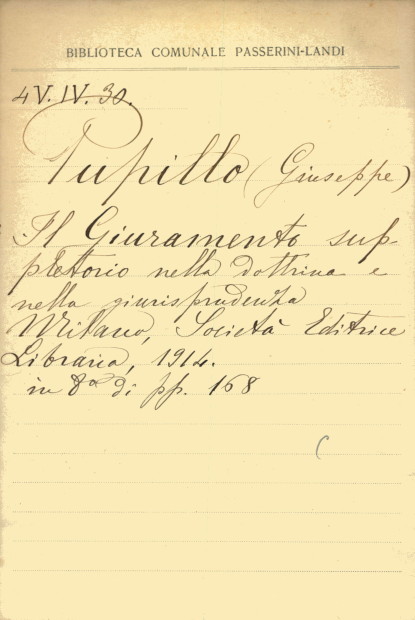 BIBLIOTECA COMUNALE PASSERINI-LANDI
4 V. IV. 30.
Pupillo (Giuseppe)
Il Giuramento sup-
pletorio nella dottrina e
nella giurisprudenza
Milano, Società Editrice
Libraria, 1914.
in 8° di pp. 168